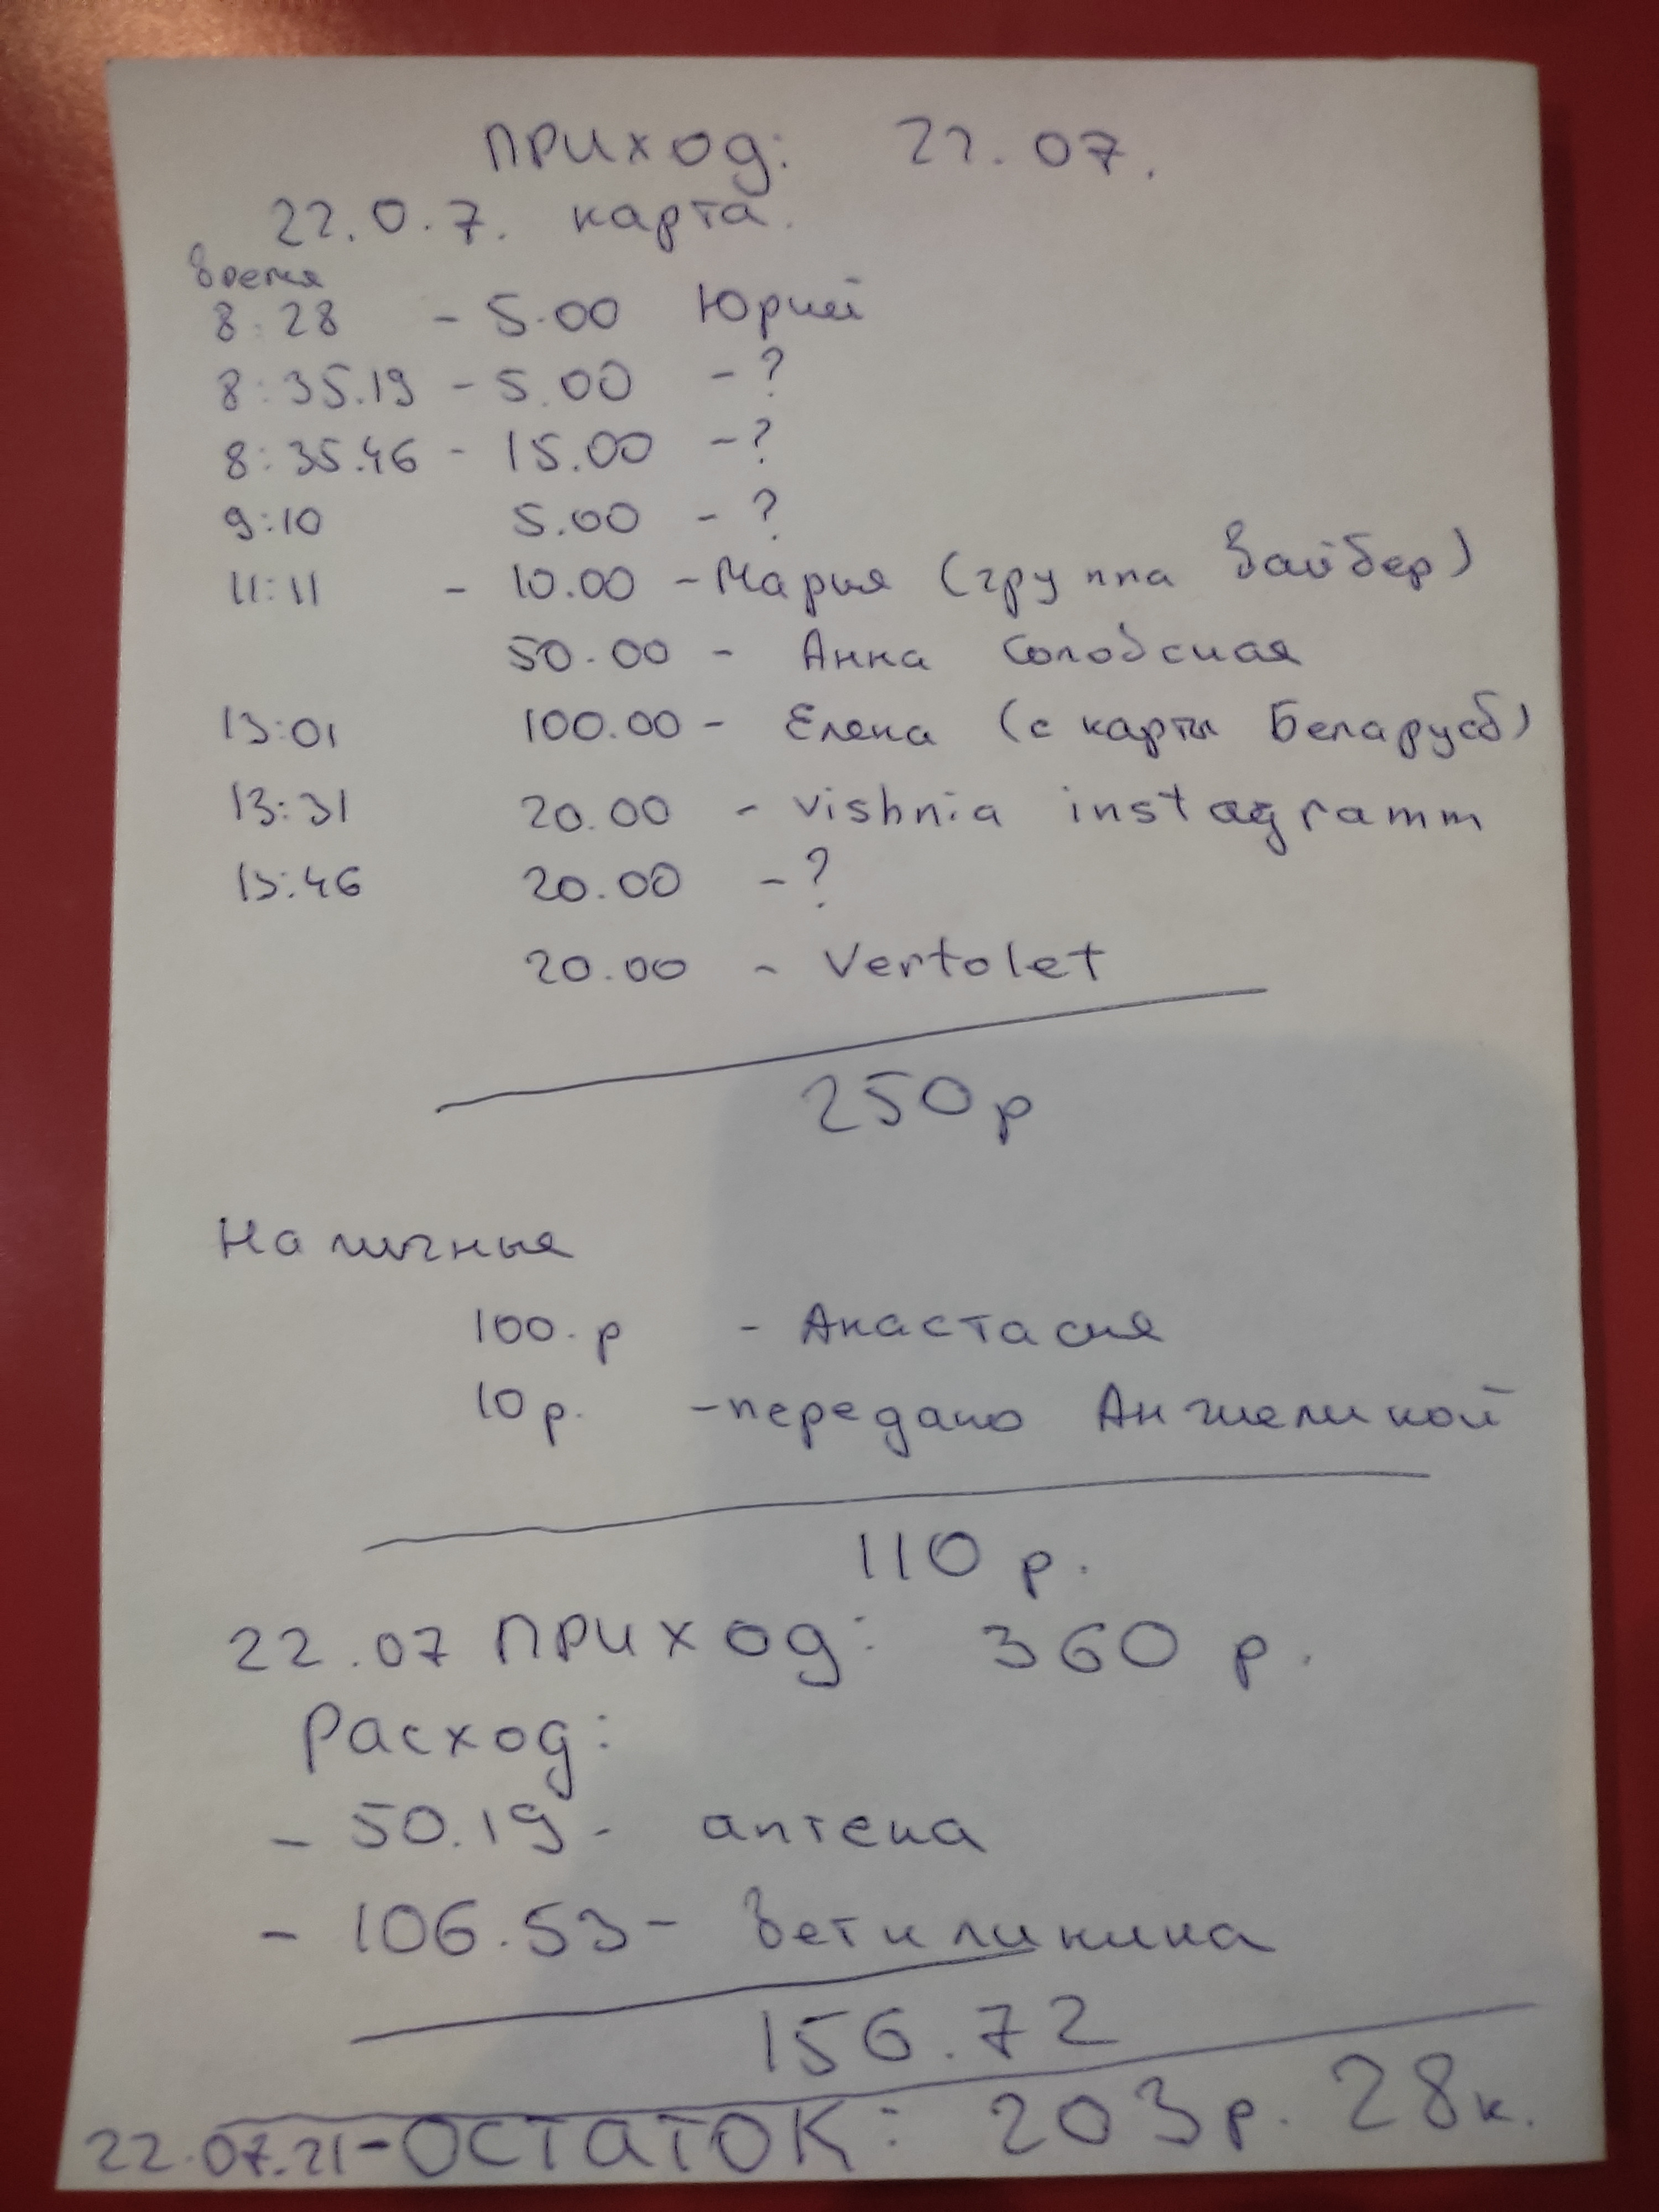 приход: 22.07.
22.0.7. карта.
время
8:28 - 5.00 Юрий
8:35.19 - 5.00 - ?
8:35.46 - 15.00 - ?
9:10 5.00 - ?
11:11 - 10.00 - Мария (группа Вайбер)
50.00 - Анна
13:01 100.00 - Елена (с карты Беларусб)
13:31 20.00 - vishnia instagramm
13:46 20.00 - ?
20.00 - Vertolet
250р
Наличные
100.р - Анастасия
10р. - передано Анжеликой
110 р.
22.07 приход: 360 р.
Расход:
- 50.19 - аптека
- 106.53 - ветклиника
156.72
22.07.21-ОСТАТОК: 203р. 28к.